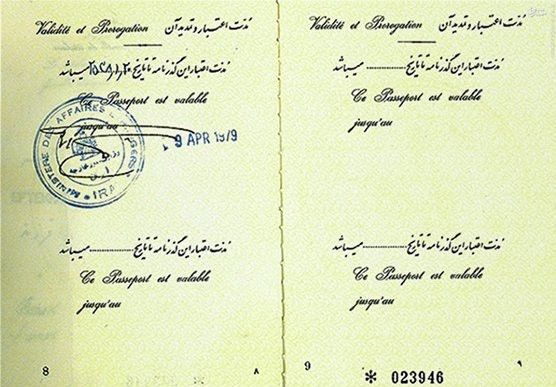 Validité et Prorogation مدت اعتبار و تمدید آن
مدت اعتبار این گذرنامه تا تاریخ میباشد
Ce Passeport est valable
jusqu'au
9 APR 1979
MINISTERE DES AFFAIRES ETRANGERES
IRAN
مدت اعتبار این گذرنامه تا تاریخ ............ میباشد
Ce Passeport est valable
jusqu'au
8 ۸
Validité et Prorogation مدت اعتبار و تمدید آن
مدت اعتبار این گذرنامه تا تاریخ ............ میباشد
Ce Passeport est valable
jusqu'au
مدت اعتبار این گذرنامه تا تاریخ ............ میباشد
Ce Passeport est valable
jusqu'au
9 ۹
* 023946